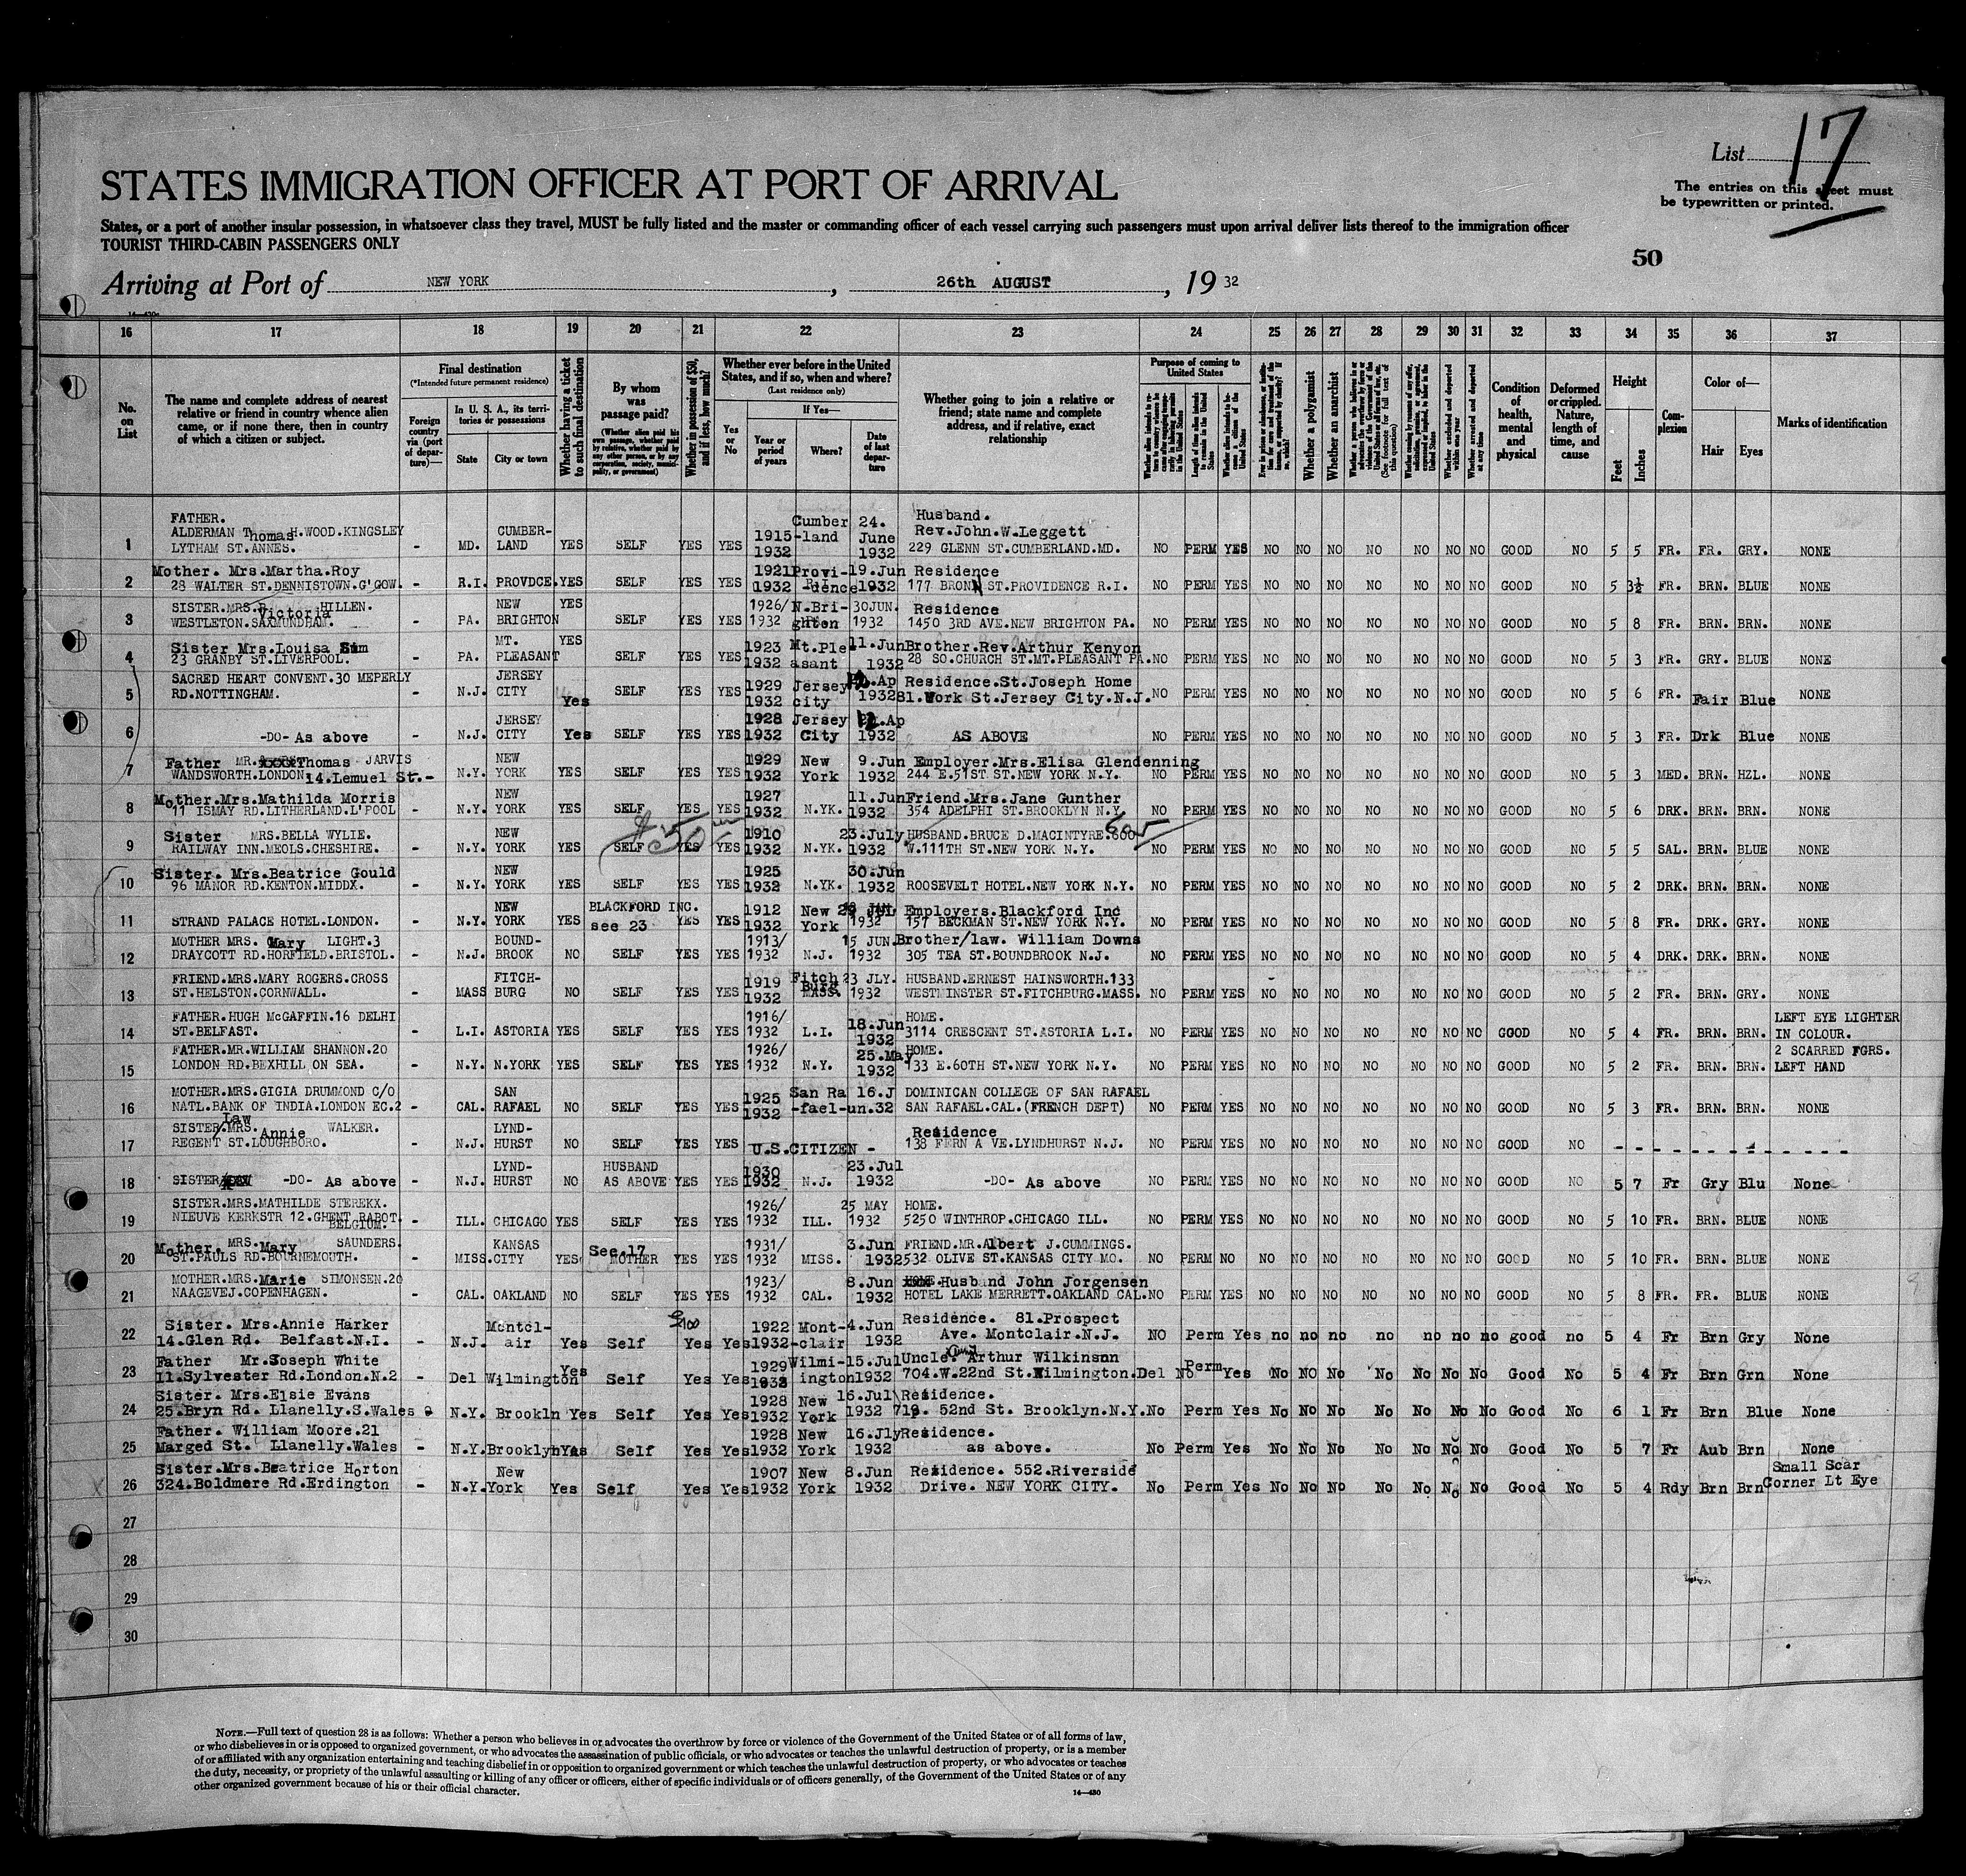 List 17
STATES IMMIGRATION OFFICER AT PORT OF ARRIVAL
The entries on this sheet must
be typewritten or printed.
States, or a port of another insular possession, in whatsoever class they travel, MUST be fully listed and the master or commanding officer of each vessel carrying such passengers must upon arrival deliver lists thereof to the immigration officer
TOURIST THIRD-CABIN PASSENGERS ONLY
50
Arriving at Port of NEW YORK, 26th AUGUST, 19 32
16 17 18 19 20 21 22 23 24 25 26 27 28 29 30 31 32 33 34 35 36 37
No. on List
The name and complete address of nearest relative or friend in country whence alien came, or if none there, then in country of which a citizen or subject.
Final destination
(*Intended future permanent residence)
Foreign country via (port of departure)—
In U. S. A., its territories or possessions
State City or town
Whether having a ticket to such final destination
By whom was passage paid?
(Whether alien paid his own passage, whether paid by relative, whether paid by any other person, or by any corporation, society, municipality, or government)
Whether in possession of $50, and if less, how much?
Whether ever before in the United States, and if so, when and where?
(Last residence only)
Yes or No
If Yes—
Year or period of years Where? Date of last departure
Whether going to join a relative or friend; state name and complete address, and if relative, exact relationship
Purpose of coming to United States
Length of time alien intends to remain in the United States
Whether alien intends to become a citizen of the United States
Whether a polygamist
Whether an anarchist
Whether excluded and deported within one year
Whether arrested and deported at any time
Condition of health, mental and physical
Deformed or crippled. Nature, length of time, and cause
Height
Feet Inches
Complexion
Color of—
Hair Eyes
Marks of identification
1 FATHER. ALDERMAN Thomas H.WOOD.KINGSLEY LYTHAM ST.ANNES. - MD. CUMBERLAND YES SELF YES YES 1915-1932 Cumberland 24. June 1932 Husband. Rev.John.W.Leggett 229 GLENN ST.CUMBERLAND.MD. NO PERM YES NO NO NO NO NO NO NO GOOD NO 5 5 FR. FR. GRY. NONE
2 Mother. Mrs.Martha.Roy 28 WALTER ST.DENNISTOWN.G'GOW. - R.I. PROVDCE. YES SELF YES YES 1921 1932 Providence R.I. 19.Jun 1932 Residence 177 BRON ST.PROVIDENCE R.I. NO PERM YES NO NO NO NO NO NO NO GOOD NO 5 3½ FR. BRN. BLUE NONE
3 SISTER.MRS. Victoria HILLEN. WESTLETON.SAXMUNDHAM. - PA. NEW BRIGHTON YES SELF YES YES 1926/1932 N.Brighton 30JUN. 1932 Residence 1450 3RD AVE.NEW BRIGHTON PA. NO PERM YES NO NO NO NO NO NO NO GOOD NO 5 8 FR. BRN. BRN. NONE
4 Sister Mrs.Louisa Sim 23 GRANBY ST.LIVERPOOL. - PA. MT. PLEASANT YES SELF YES YES 1923 1932 Mt.Pleasant 11.Jun 1932 Brother.Rev.Arthur Kenyon 28 SO.CHURCH ST.MT.PLEASANT PA. NO PERM YES NO NO NO NO NO NO NO GOOD NO 5 3 FR. GRY. BLUE NONE
5 SACRED HEART CONVENT.30 MEPERLY RD.NOTTINGHAM. - N.J. JERSEY CITY Yes SELF YES YES 1929 1932 Jersey city Ap 1932 Residence.St.Joseph Home 81.York St.Jersey City.N.J. NO PERM YES NO NO NO NO NO NO NO GOOD NO 5 6 FR. Fair Blue NONE
6 -DO- As above - N.J. JERSEY CITY Yes SELF YES YES 1928 1932 Jersey City 12.Ap 1932 AS ABOVE NO PERM YES NO NO NO NO NO NO NO GOOD NO 5 3 FR. Drk Blue NONE
7 Father MR. Thomas JARVIS WANDSWORTH.LONDON 14.Lemuel St. - N.Y. NEW YORK YES SELF YES YES 1929 1932 New York 9.Jun 1932 Employer.Mrs.Elisa Glendenning 244 E.51ST ST.NEW YORK N.Y. NO PERM YES NO NO NO NO NO NO NO GOOD NO 5 3 MED. BRN. HZL. NONE
8 Mother.Mrs.Mathilda Morris 11 ISMAY RD.LITHERLAND.L'POOL - N.Y. NEW YORK YES SELF YES YES 1927 1932 N.YK. 11.Jun 1932 Friend.Mrs.Jane Gunther 354 ADELPHI ST.BROOKLYN N.Y. NO PERM YES NO NO NO NO NO NO NO GOOD NO 5 6 DRK. BRN. BRN. NONE
9 Sister MRS.BELLA WYLIE. RAILWAY INN.MEOLS.CHESHIRE. - N.Y. NEW YORK YES SELF YES YES 1910 1932 N.YK. 23.July 1932 HUSBAND.BRUCE D.MACINTYRE.600 605 W.111TH ST.NEW YORK N.Y. NO PERM YES NO NO NO NO NO NO NO GOOD NO 5 5 SAL. BRN. BLUE NONE
10 Sister. Mrs.Beatrice Gould 96 MANOR RD.KENTON.MIDDX. - N.Y. NEW YORK YES SELF YES YES 1925 1932 N.YK. 30.Jun 1932 ROOSEVELT HOTEL.NEW YORK N.Y. NO PERM YES NO NO NO NO NO NO NO GOOD NO 5 2 DRK. BRN. BRN. NONE
11 STRAND PALACE HOTEL.LONDON. - N.Y. NEW YORK YES BLACKFORD INC. see 23 YES YES 1912 1932 New York JUL 1932 Employers.Blackford Inc 157 BECKMAN ST.NEW YORK N.Y. NO PERM YES NO NO NO NO NO NO NO GOOD NO 5 8 FR. DRK. GRY. NONE
12 MOTHER MRS. Mary LIGHT.3 DRAYCOTT RD.HORFIELD.BRISTOL. - N.J. BOUNDBROOK NO SELF YES YES 1913/1932 N.J. 15 JUN. 1932 Brother/law. William Downs 305 TEA ST.BOUNDBROOK N.J. NO PERM YES NO NO NO NO NO NO NO GOOD NO 5 4 DRK. DRK. BRN. NONE
13 FRIEND.MRS.MARY ROGERS.CROSS ST.HELSTON.CORNWALL. - MASS FITCHBURG NO SELF YES YES 1919 1932 Fitch Burg MASS. 23 JLY. 1932 HUSBAND.ERNEST HAINSWORTH.133 WESTMINSTER ST.FITCHBURG.MASS. NO PERM YES NO NO NO NO NO NO NO GOOD NO 5 2 FR. BRN. GRY. NONE
14 FATHER.HUGH McGAFFIN.16 DELHI ST.BELFAST. - L.I. ASTORIA YES SELF YES YES 1916/1932 L.I. 18.Jun 1932 HOME. 3114 CRESCENT ST.ASTORIA L.I. NO PERM YES NO NO NO NO NO NO NO GOOD NO 5 4 FR. BRN. BRN. LEFT EYE LIGHTER IN COLOUR.
15 FATHER.MR.WILLIAM SHANNON.20 LONDON RD.BEXHILL ON SEA. - N.Y. N.YORK YES SELF YES YES 1926/1932 N.Y. 25.May 1932 HOME. 133 E.60TH ST.NEW YORK N.Y. NO PERM YES NO NO NO NO NO NO NO GOOD NO 5 2 FR. BRN. BRN. 2 SCARRED FGRS. LEFT HAND
16 MOTHER.MRS.GIGIA DRUMMOND C/O NATL.BANK OF INDIA.LONDON EC.2 - CAL. SAN RAFAEL NO SELF YES YES 1925 1932 San Rafael- 16.Jun.32 DOMINICAN COLLEGE OF SAN RAFAEL SAN RAFAEL.CAL.(FRENCH DEPT) NO PERM YES NO NO NO NO NO NO NO GOOD NO 5 3 FR. BRN. BRN. NONE
17 SISTER/Law MRS. Annie WALKER. REGENT ST.LOUGHBORO. - N.J. LYNDHURST NO SELF YES YES U.S.CITIZEN - Residence 138 FERN AVE.LYNDHURST N.J. NO PERM YES NO NO NO NO NO NO NO GOOD NO - - - - - -
18 SISTER -DO- As above - N.J. LYNDHURST NO HUSBAND AS ABOVE YES YES 1930 1932 N.J. 23.Jul 1932 -DO- As above NO PERM YES NO NO NO NO NO NO NO GOOD NO 5 7 Fr Gry Blu None
19 SISTER.MRS.MATHILDE STEREKX. NIEUVE KERKSTR 12.GHENT RABOT. BELGIUM. - ILL. CHICAGO YES SELF YES YES 1926/1932 ILL. 25 MAY 1932 HOME. 5250 WINTHROP.CHICAGO ILL. NO PERM YES NO NO NO NO NO NO NO GOOD NO 5 10 FR. BRN. BLUE NONE
20 Mother. MRS.Mary SAUNDERS. ST.PAULS RD.BOURNEMOUTH. - MISS. KANSAS CITY YES See.17 MOTHER YES YES 1931/1932 MISS. 3.Jun 1932 FRIEND.MR.Albert J.CUMMINGS. 2532 OLIVE ST.KANSAS CITY MO. NO PERM NO NO NO NO NO NO NO NO GOOD NO 5 10 FR. BRN. BLUE NONE
21 MOTHER.MRS.Marie SIMONSEN.20 NAAGEVEJ.COPENHAGEN. - CAL. OAKLAND NO SELF YES YES 1923/1932 CAL. 8.Jun 1932 Husband John Jorgensen HOTEL LAKE MERRETT.OAKLAND CAL. NO PERM YES NO NO NO NO NO NO NO GOOD NO 5 8 FR. FR. BLUE NONE
22 Sister. Mrs.Annie Harker 14.Glen Rd. Belfast.N.I. - N.J. Montclair Yes Self $100 Yes Yes 1922 1932 Mont-clair 4.Jun 1932 Residence. 81.Prospect Ave. Montclair.N.J. NO Perm Yes no no no no no no no good no 5 4 Fr Brn Gry None
23 Father Mr.Joseph White 11.Sylvester Rd.London.N.2 - Del Wilmington Yes Self Yes Yes 1929 1932 Wilmington 15.Jul 1932 Uncle. Arthur Wilkinson 704.W.22nd St.Wilmington.Del No Perm Yes No NO No No No No No Good No 5 4 Fr Brn Grn None
24 Sister. Mrs.Elsie Evans 25.Bryn Rd. Llanelly.S.Wales - N.Y. Brookln Yes Self Yes Yes 1928 1932 New York 16.Jul 1932 Residence. 719. 52nd St. Brooklyn.N.Y. No Perm Yes No No No No No No No Good No 6 1 Fr Brn Blue None
25 Father. William Moore.21 Marged St. Llanelly.Wales - N.Y. Brooklyn Yes Self Yes Yes 1928 1932 New York 16.Jly 1932 Residence. as above. No Perm Yes No No No No No No No Good No 5 7 Fr Aub Brn None
26 Sister.Mrs.Beatrice Horton 324.Boldmere Rd.Erdington - N.Y. New York Yes Self Yes Yes 1907 1932 New York 8.Jun 1932 Residence. 552.Riverside Drive. NEW YORK CITY. No Perm Yes No No No No No No No Good No 5 4 Rdy Brn Brn Small Scar Corner Lt Eye
27
28
29
30
NOTE.—Full text of question 28 is as follows: Whether a person who believes in or advocates the overthrow by force or violence of the Government of the United States or of all forms of law,
or who disbelieves in or is opposed to organized government, or who advocates the assassination of public officials, or who advocates or teaches the unlawful destruction of property, or is a member
of or affiliated with any organization entertaining and teaching disbelief in or opposition to organized government or which teaches the unlawful destruction of property, or who advocates or teaches
the duty, necessity, or propriety of the unlawful assaulting or killing of any officer or officers, either of specific individuals or of officers generally, of the Government of the United States or of any
other organized government because of his or their official character.
14—430